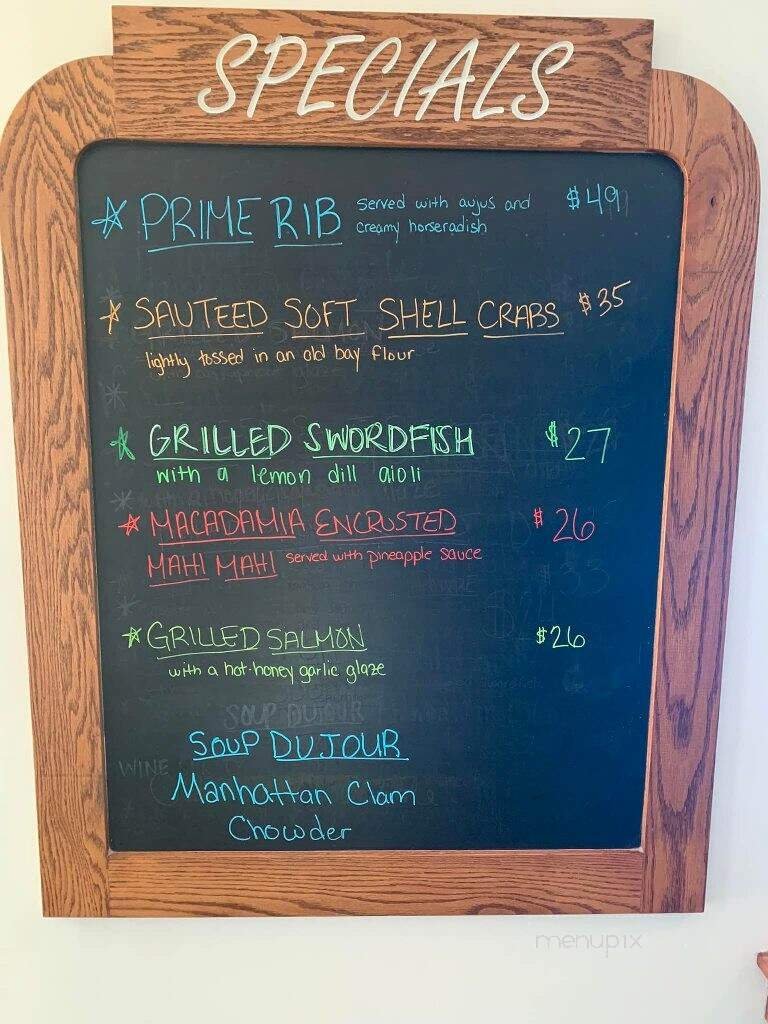 SPECIALS
PRIME RIB served with aujus and creamy horseradish $49
SAUTEED SOFT SHELL CRABS $35
lightly tossed in an old bay flour
GRILLED SWORDFISH $27
with a lemon dill aioli
MACADAMIA ENCRUSTED $26
MAHI MAHI served with pineapple sauce
GRILLED SALMON $26
with a hot-honey garlic glaze
SOUP DUJOUR
SOUP DUJOUR
WINE
Manhattan Clam
Chowder
menupix